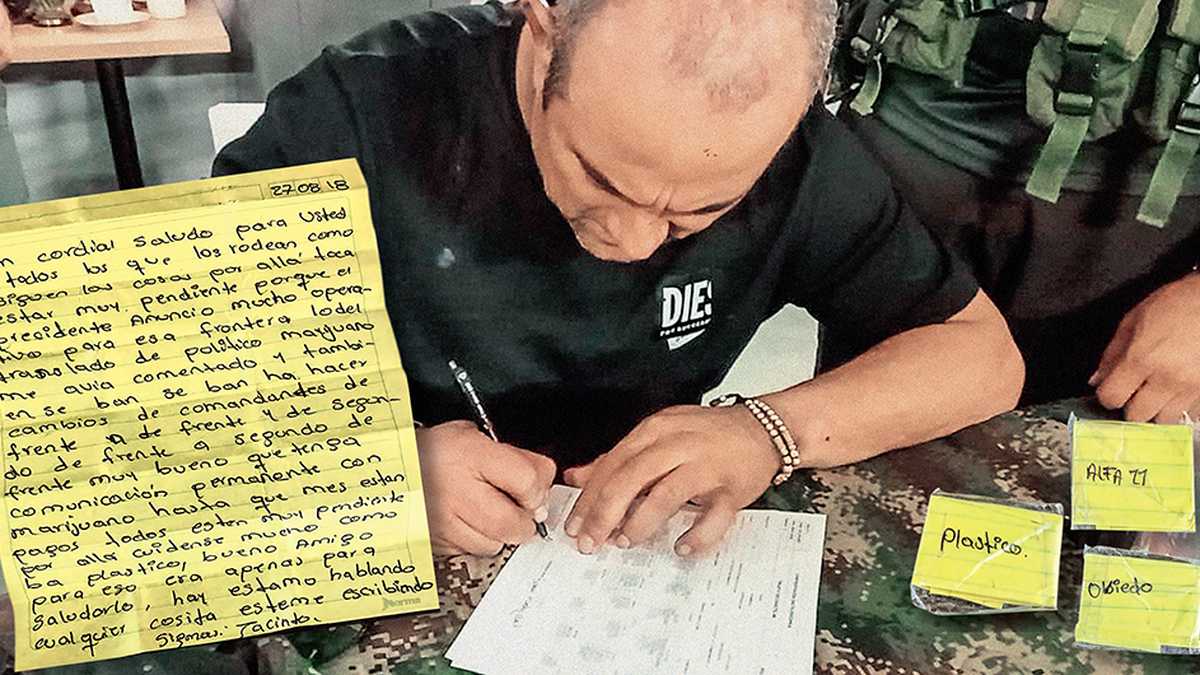 27 08 18
n cordial saludo para Usted
todos los que los rodean como
siguen las cosas por allá taca
estar muy pendiente porque el
presidente Anuncio mucho opera-
tivo para esa frontera lo del
translado de politico marijuano
me avia comentado y tambi-
en se ban se ban ha hacer
cambios de comandantes de
frente a de frente y de segun-
do de frente a segundo de
frente muy bueno que tenga
comunicación permanente con
marijuano hasta que mes estan
pagos todos esten muy pendiente
por allá cuidense mucho como
ba plastico, bueno Amigo
para eso era apenas para
saludarlo, hay estamo hablando
cualquier cosita esteme escribiendo
Jacinto.
norma
DIES
plastico.
ALFA 11
Obiedo